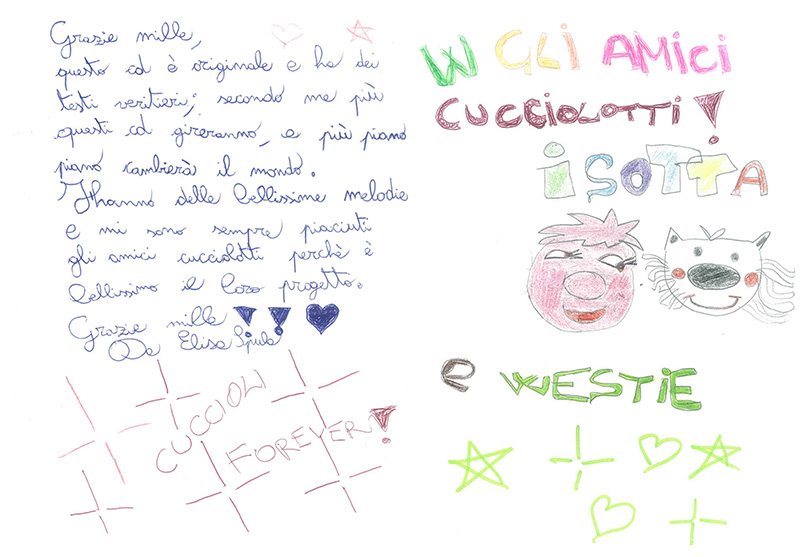 Grazie mille,
questo cd è originale e ha dei
testi veritieri; secondo me più
questi cd gireranno, e più piano
piano cambierà il mondo.
Hanno delle bellissime melodie
e mi sono sempre piaciuti
gli amici cucciolotti perchè è
bellissimo il loro progetto.
Grazie mille !!
Da Elisa
CUCCIOLI
FOREVER!
W GLI AMICI
CUCCIOLOTTI!
ISOTTA
e WESTIE